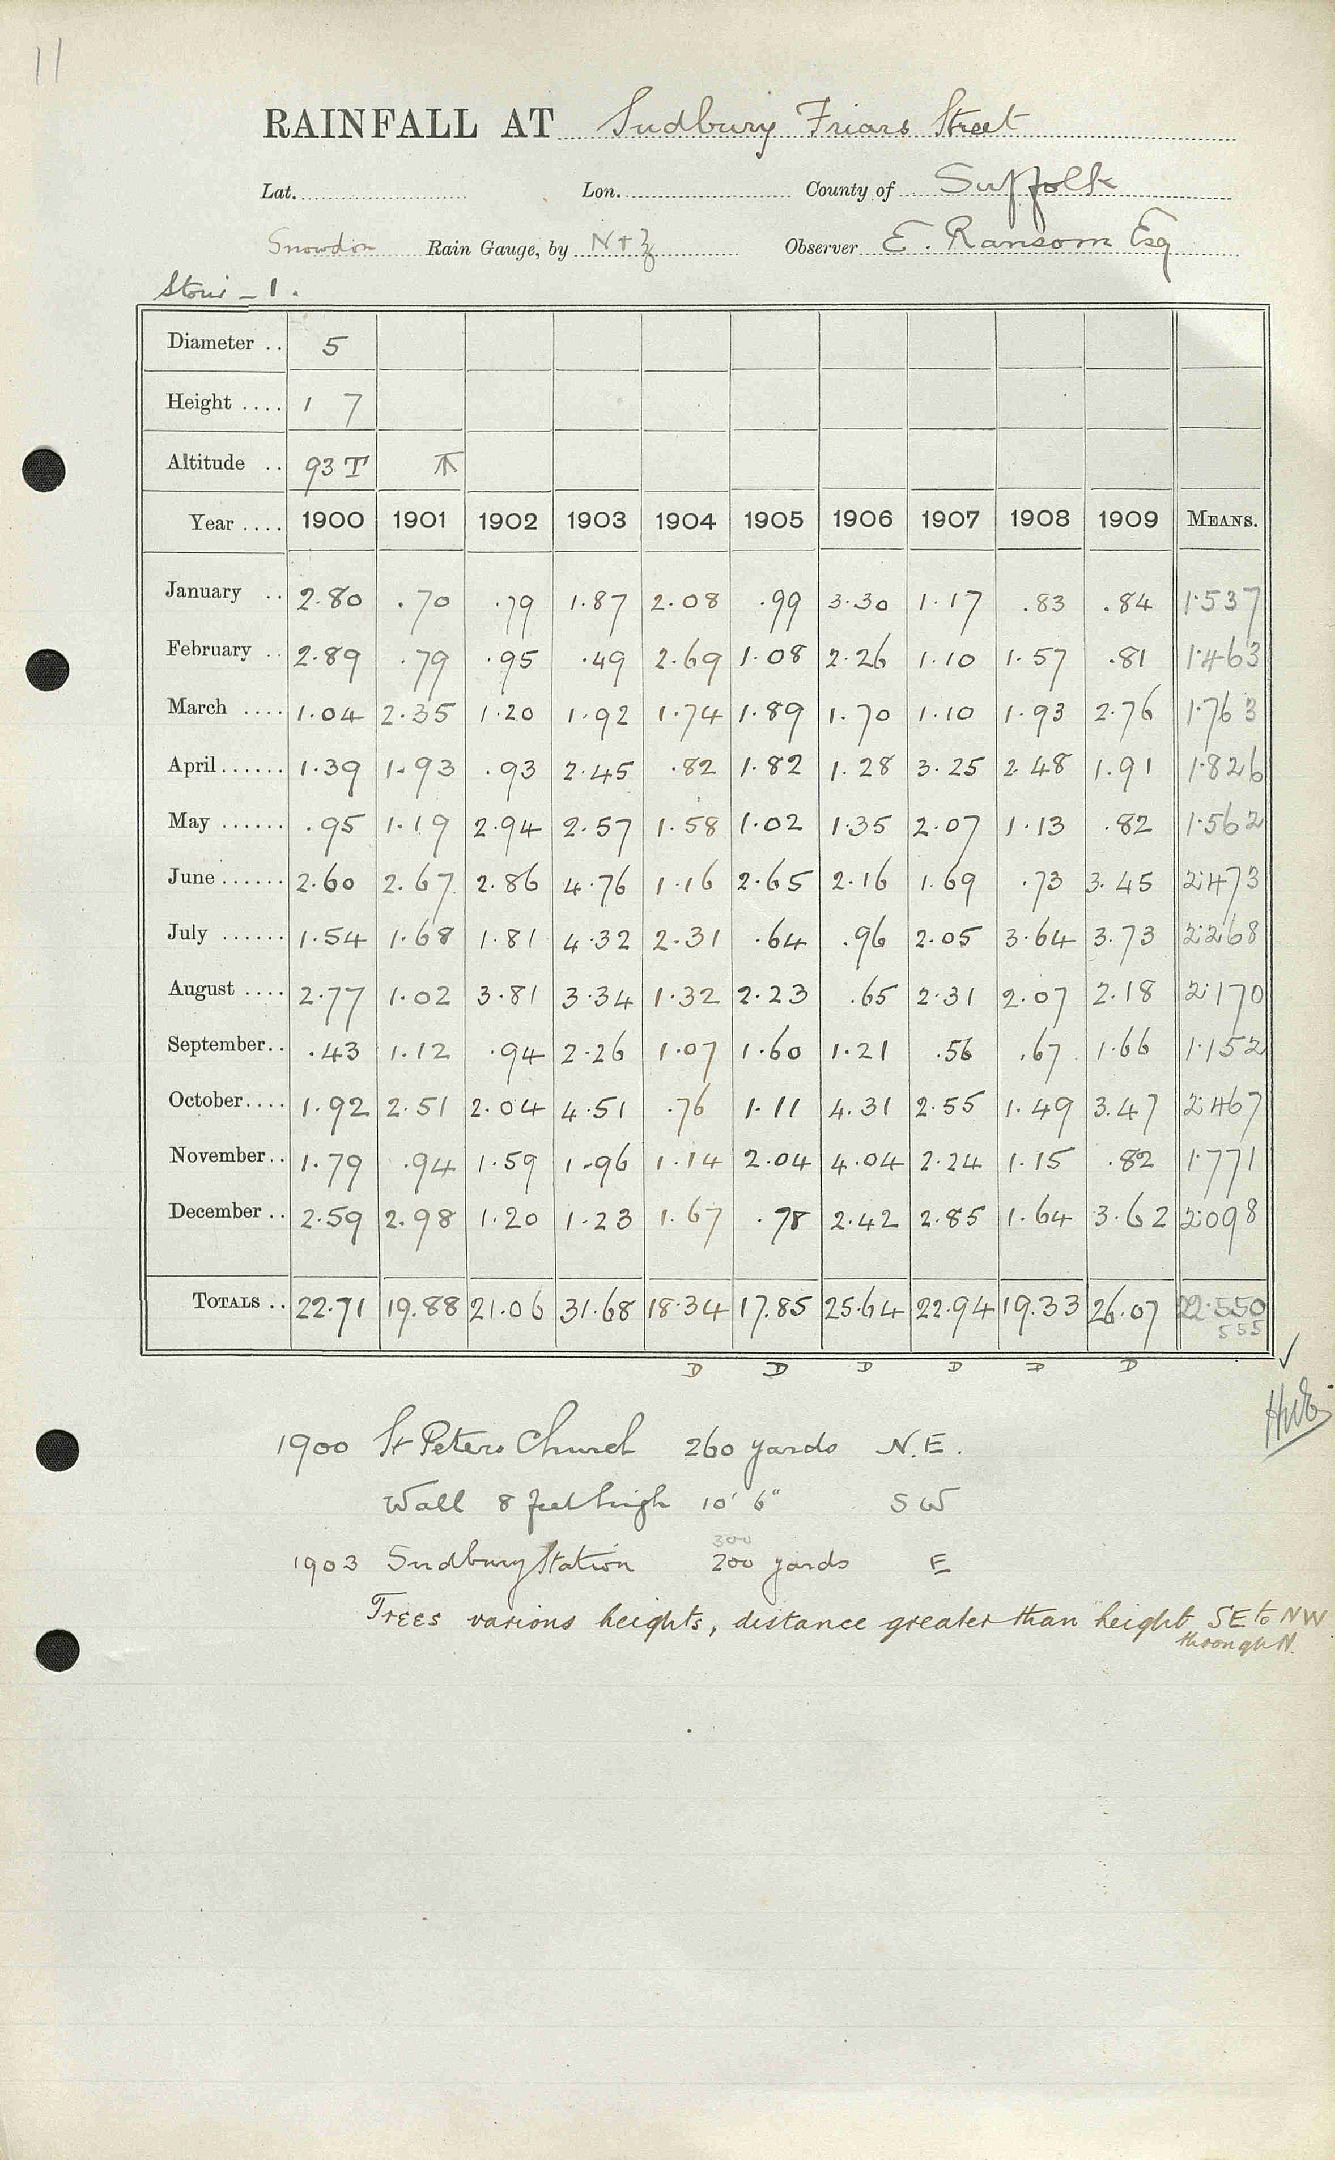 11
RAINFALL AT Sudbury Friars Street
Lat. Lon. County of Suffolk
Snowdon Rain Gauge, by N+Z Observer E. Ransom Esq
Stour - 1.
Diameter .. 5
Height .... 1 7
Altitude .. 93 T
Year .... 1900 1901 1902 1903 1904 1905 1906 1907 1908 1909 MEANS.
January .. 2.80 .70 .79 1.87 2.08 .99 3.30 1.17 .83 .84 1.537
February .. 2.89 .79 .95 .49 2.69 1.08 2.26 1.10 1.57 .81 1.463
March .... 1.04 2.35 1.20 1.92 1.74 1.89 1.70 1.10 1.93 2.76 1.763
April...... 1.39 1.93 .93 2.45 .82 1.82 1.28 3.25 2.48 1.91 1.826
May ...... .95 1.19 2.94 2.57 1.58 1.02 1.35 2.07 1.13 .82 1.562
June...... 2.60 2.67 2.86 4.76 1.16 2.65 2.16 1.69 .73 3.45 2.473
July ...... 1.54 1.68 1.81 4.32 2.31 .64 .96 2.05 3.64 3.73 2.268
August .... 2.77 1.02 3.81 3.34 1.32 2.23 .65 2.31 2.07 2.18 2.170
September.. .43 1.12 .94 2.26 1.07 1.60 1.21 .56 .67 1.66 1.152
October.... 1.92 2.51 2.04 4.51 .76 1.11 4.31 2.55 1.49 3.47 2.467
November.. 1.79 .94 1.59 1.96 1.14 2.04 4.04 2.24 1.15 .82 1.771
December .. 2.59 2.98 1.20 1.23 1.67 .78 2.42 2.85 1.64 3.62 2.098
TOTALS .. 22.71 19.88 21.06 31.68 18.34 17.85 25.64 22.94 19.33 26.07 22.550
555
D D D D D D
1900 St Peters Church 260 yards N.E.
Wall 8 feet high 10' 6" SW
300
1903 Sudbury Station 200 yards E
Trees various heights, distance greater than height SE to NW
through N.